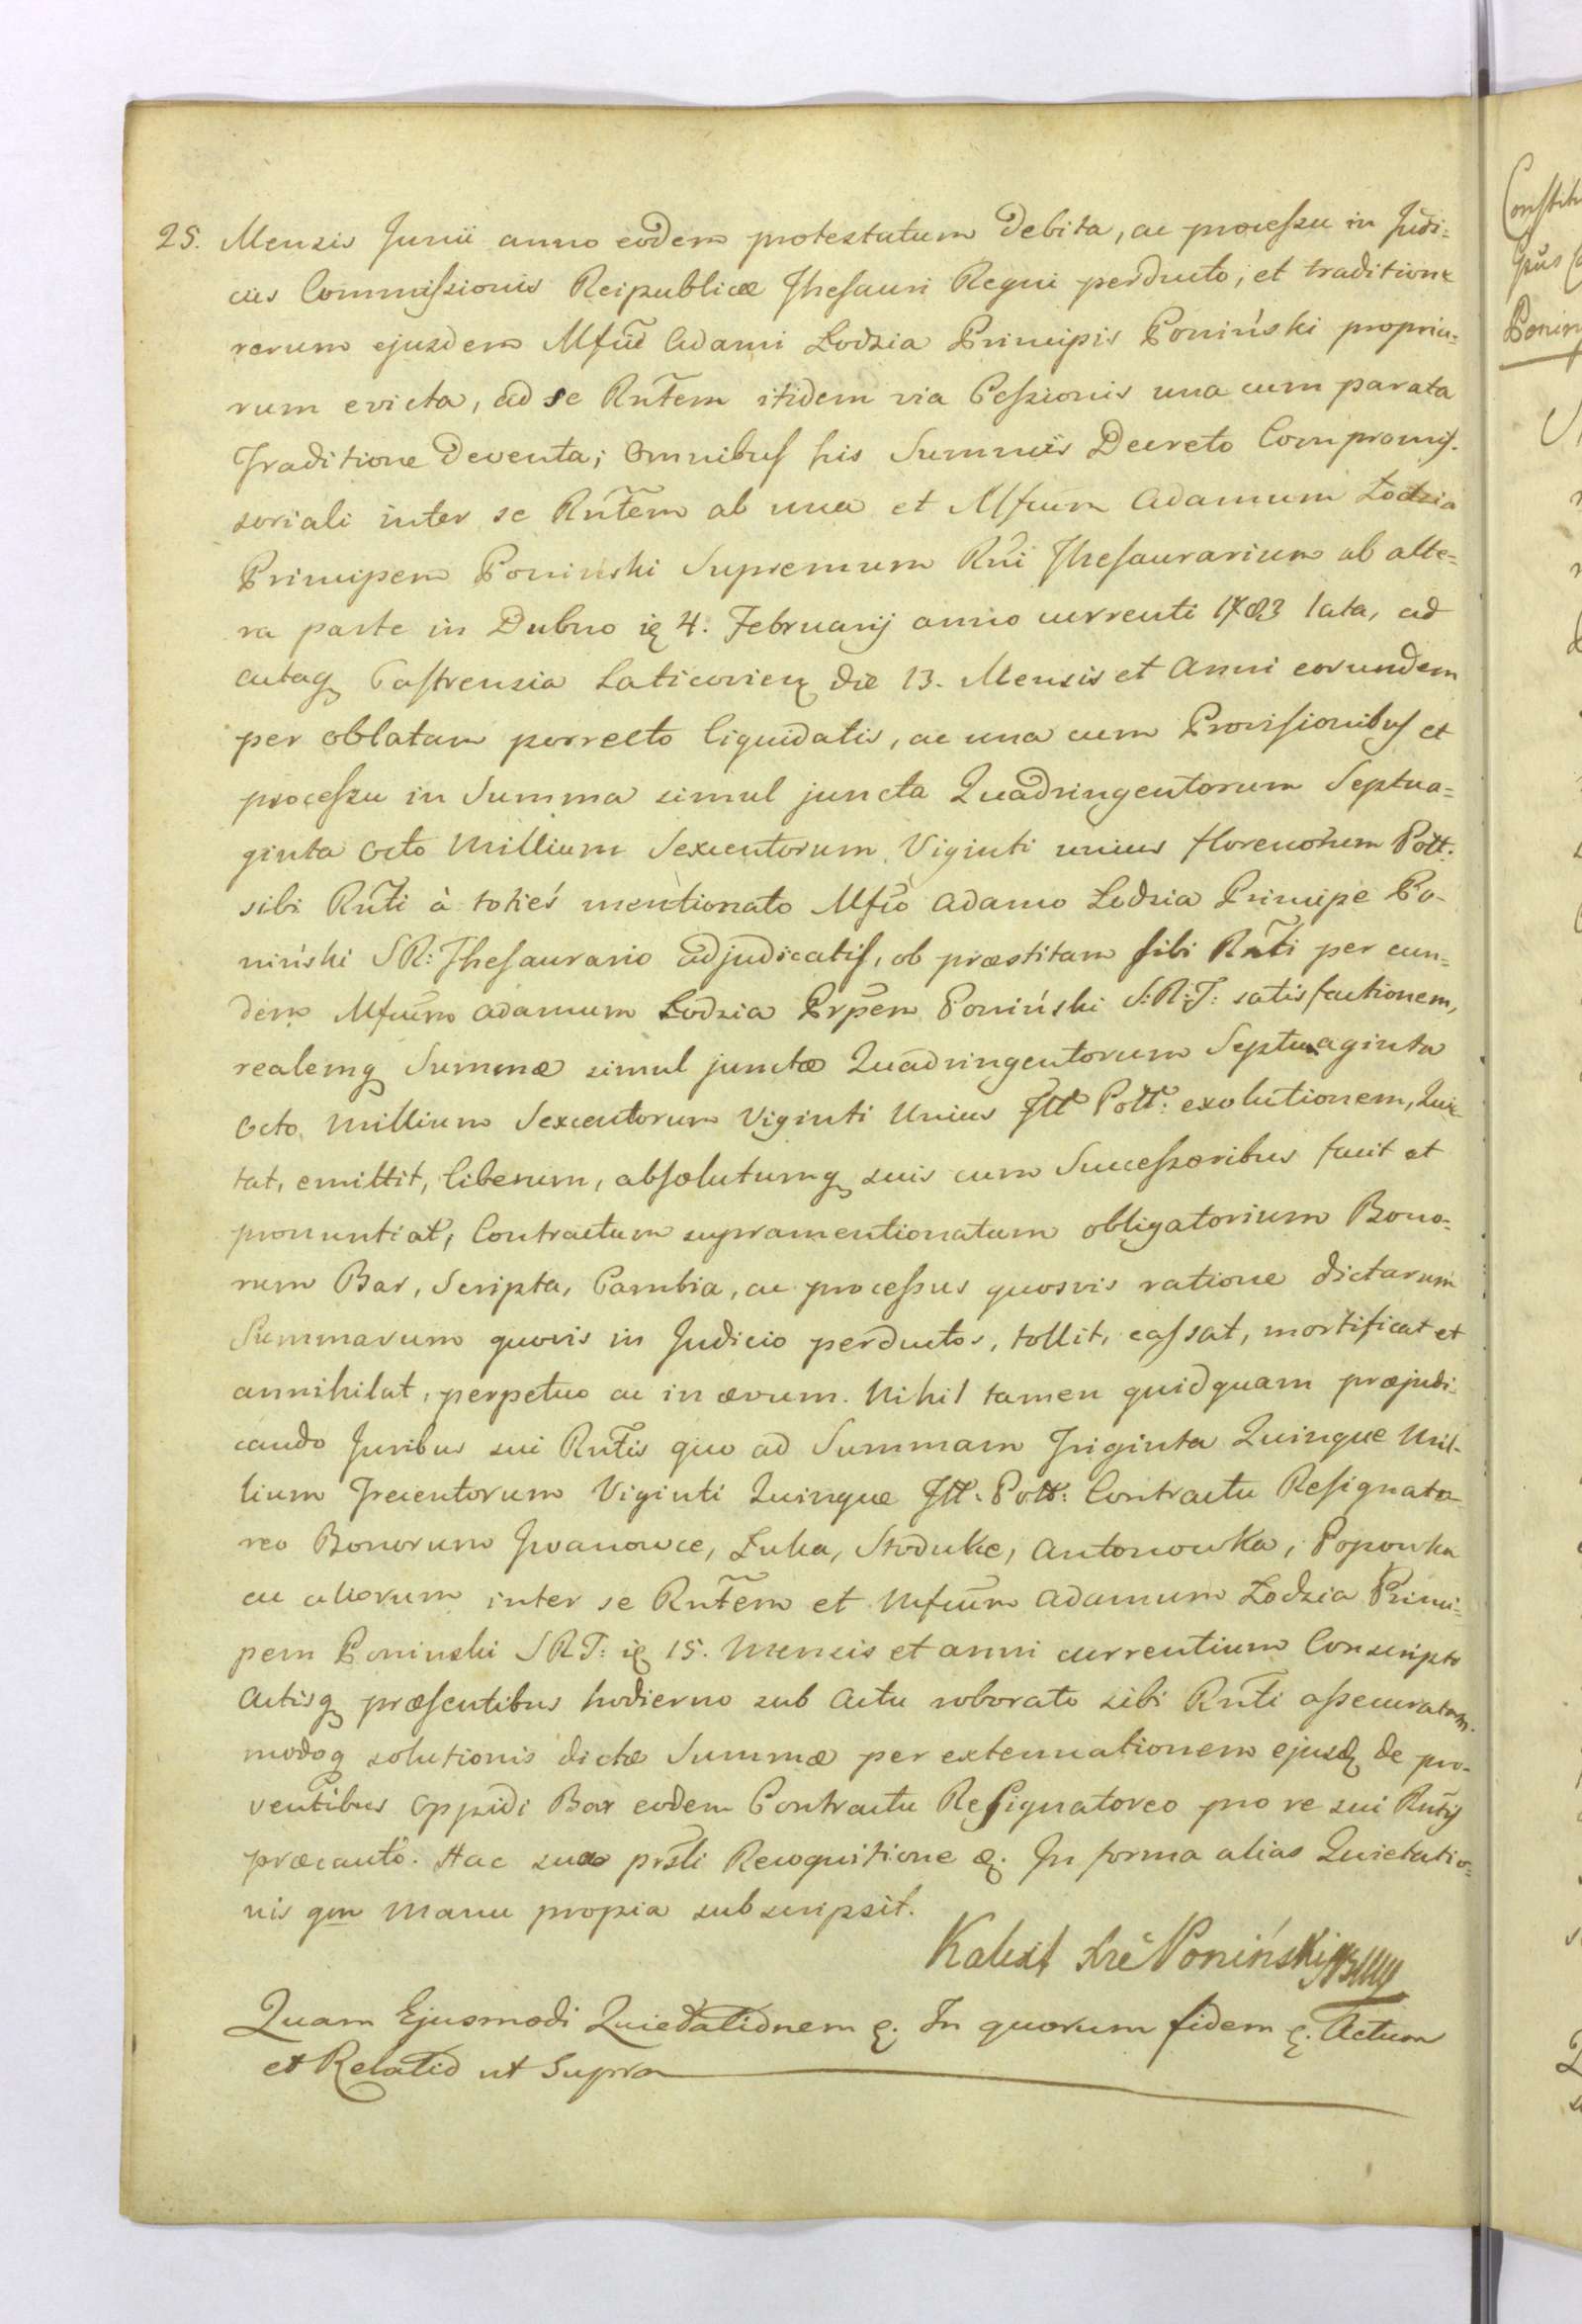 25. Mensis Junii anno eodem protestatum Debita, ac processu in Judi=
ciis Commissionis Reipublicæ Thesauri Regni perducto, et traditione
rerum ejusdem Mfici Adami Lodzia Principis Poniński propria=
rum evicta, ad se Rntem itidem via Cessionis una cum parata
Traditione Deventa; Omnibus his Summis Decreto Compromis.
soriali inter se Rntem ab una et Mficum Adamum Łodzia
Principem Poninski Supremum Rni Thesaurarium ab alte=
ra parte in Dubno 4. Februarij anno currenti 1783 lata, ad
actaq Castrensia Laticovien die 13. Mensis et Anni eorundem
per oblatam porrecto liquidatis, ac una cum Provisionibus et
processu in Summa simul juncta Quadringentorum Septua=
ginta Octo Millium Sexcentorum Viginti unius florenorum Poll.
sibi Rnti à toties mentionato Mfico Adamo Lodzia Principe Po-
niński SR: Thesaurario adjudicatis, ob præstitam sibi Rnti per eun=
dem Mficum Adamum Lodzia Prpem Poniński S:R:T: satisfactionem,
realemq Summæ simul junctæ Quadringentorum Septuaginta
Octo Millium Sexcentorum Viginti Unius Fll Poll: exolutionem, Quie
tat, emittit, liberum, absolutumq suis cum Successoribus facit et
pronuntiat, Contractum supramentionatum obligatorium Bono=
rum Bar, Scripta, Cambia, ac processus quosvis ratione dictarum
Summarum quovis in Judicio perductos, tollit, cassat, mortificat et
annihilat, perpetuo ac in ævum. Nihil tamen quidquam præjudi=
cando Juribus sui Rntis quo ad Summam Triginta Quinque Mil-
lium Trecentorum Viginti Quinque Fll: Poll: Contractu Resignato-
reo Bonorum Iwanowce, Luka, Stodulce, Antonowka, Popowka
ac aliorum inter se Rntem et Mficum Adamum Lodzia Princi=
pem Poninski SRT: 15. Mensis et anni currentium Conscripto
Actisq præsentibus hodierno sub Actu roborato sibi Rnti assecuratam.
modoq solutionis dictæ Summæ per extenuationem ejusd de pro-
ventibus Oppidi Bar eodem Contractu Resignatoreo pro re sui Rntis
præcauto. Hac sua prsti Recognitione &. In forma alias Quietatio=
nis qm Manu propia subscripsit.
Kalixt Xże Poniński
Quam Ejusmodi Quietationem &. In quorum fidem &. Actum
et Relatio ut Supra